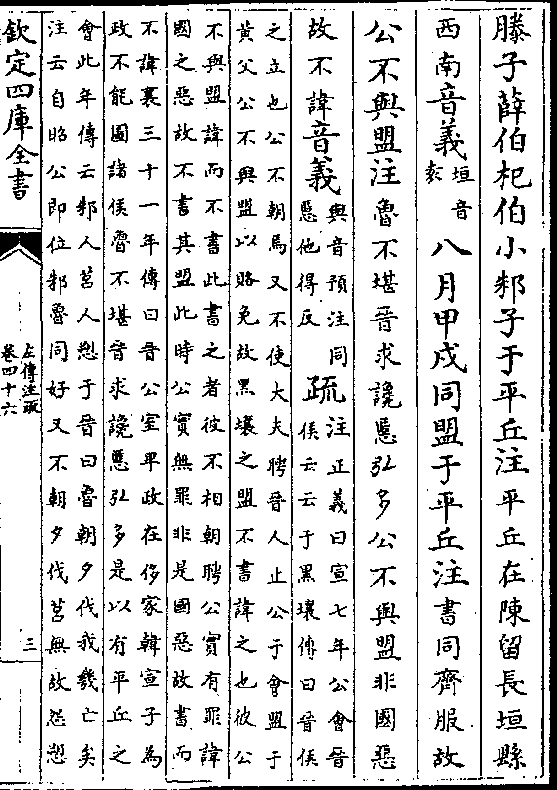 滕子薛伯杞伯小邾子于平丘注平丘在陳留長垣縣
西南音義垣音袁八月甲戌同盟于平丘注書同齊服故
公不與盟注魯不堪晉求讒慝弘多公不與盟非國惡
故不諱音義與音預注同慝他得反疏注正義曰宣七年公會晉侯云云于黑壤傳曰晉侯
之立也公不朝焉又不使大夫聘晉人止公于會盟于
黃父公不與盟以賂免故黑壤之盟不書諱之也彼公
不與盟諱而不書此書之者彼不相朝聘公實有罪諱
國之惡故不書其盟此時公實無罪非是國惡故書而
不諱襄三十一年傳曰晉公室卑政在侈家韓宣子為
政不能圖諸侯魯不堪晉求讒慝弘多是以有平丘之
會此年傳云邾人莒人愬于晉曰魯朝夕伐我幾亡矣
注云自昭公即位邾魯同好又不朝夕伐莒無故怨愬
欽定四庫全書
左傳注疏
卷四十六
三